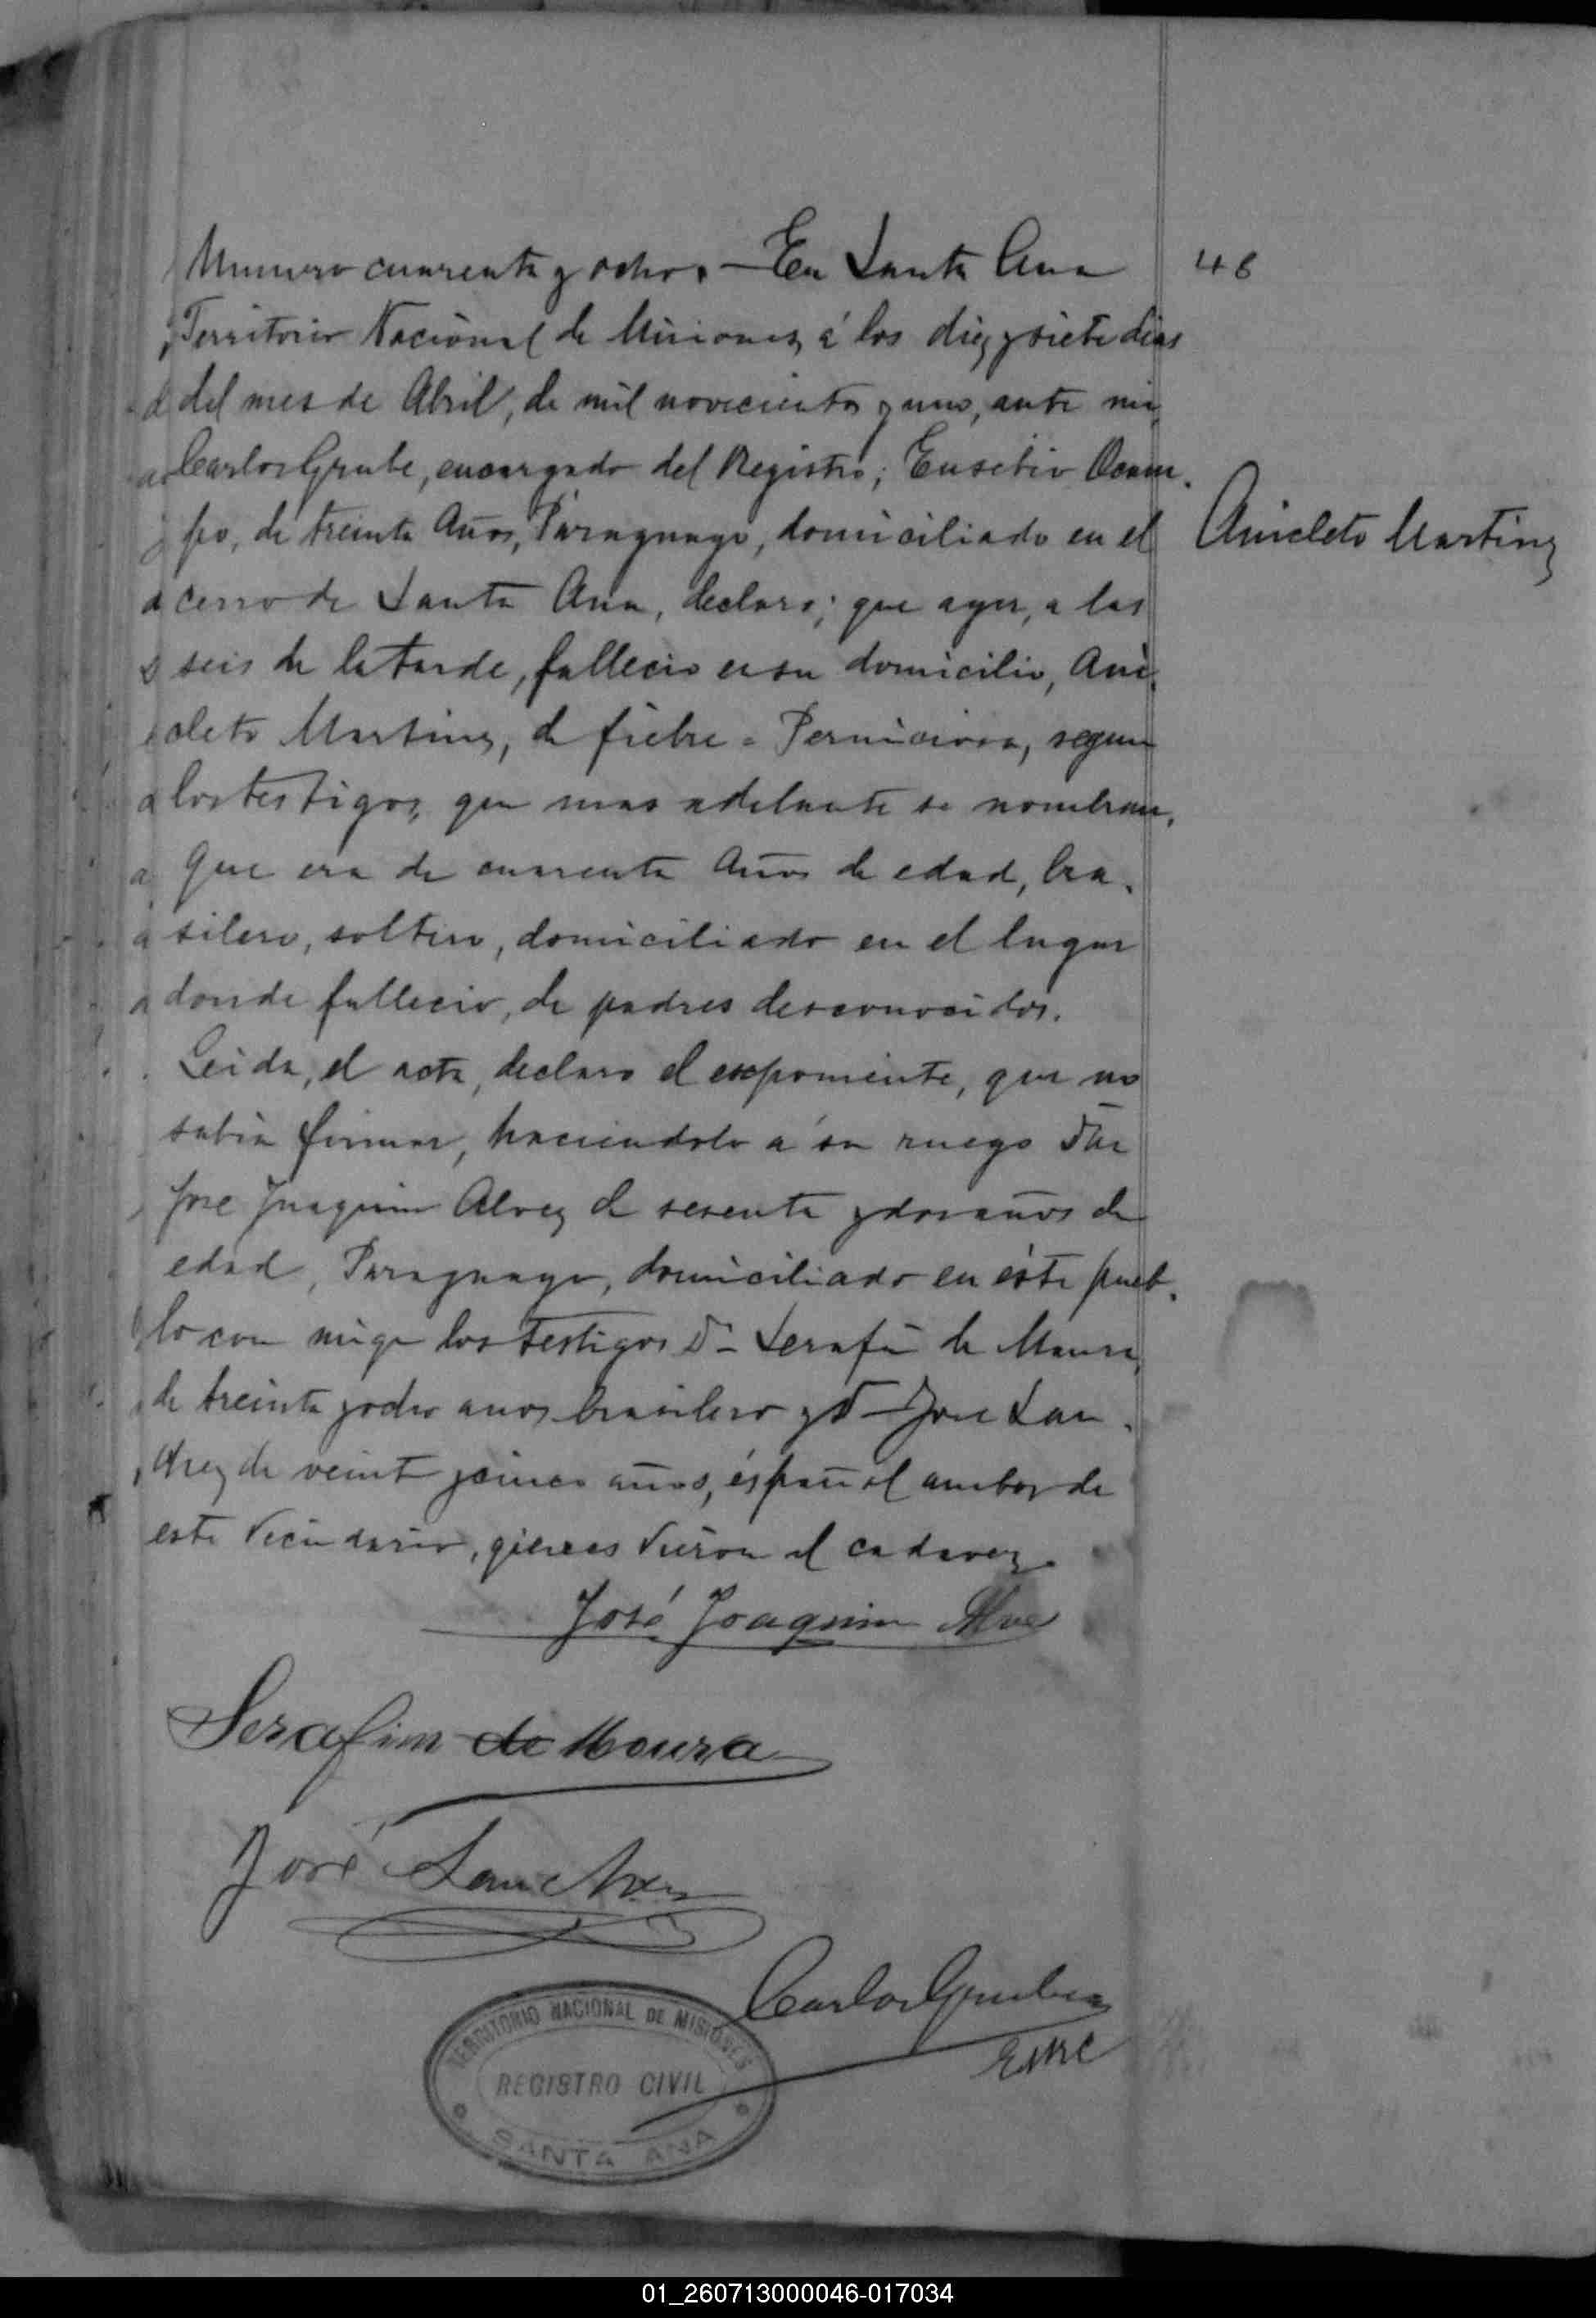 Numero cuarenta y ocho. — En Santa Ana
48
Territorio Nacional de Misiones á los diez y siete dias
del mes de Abril, de mil novecientos y uno, ante mi,
Carlos Grube, encargado del Registro; Eusebio Ocam-
po, de treinta Años, Paraguayo, domiciliado en el
Anicleto Martinez
cerro de Santa Ana, declaro; que ayer, a las
seis de la tarde, fallecio en su domicilio, Ani-
cleto Martinez, de fiebre = Perniciosa, segun
los testigos, que mas adelante se nombran,
Que era de cuarenta Años de edad, bra-
silero, soltero, domiciliado en el lugar
donde fallecio, de padres desconocidos.
Leida, el acta, declaro el exponiente, que no
sabia firmar, haciendolo a su ruego Dn
Jose Joaquin Alvez de sesenta y dos años de
edad, Paraguayo, domiciliado en éste pueb-
lo con migo los testigos Dn Serafin de Moura,
de treinta y ocho años brasilero y Dn Jose San-
chez de veinte y cinco años, español ambos de
este Vecindario, qienes Vieron el cadavez.
José Joaquim Alves
Serafim de Moura
José Sanchez
Carlos Grube
TERRITORIO NACIONAL DE MISIONES
REGISTRO CIVIL
SANTA ANA
01_260713000046-017034